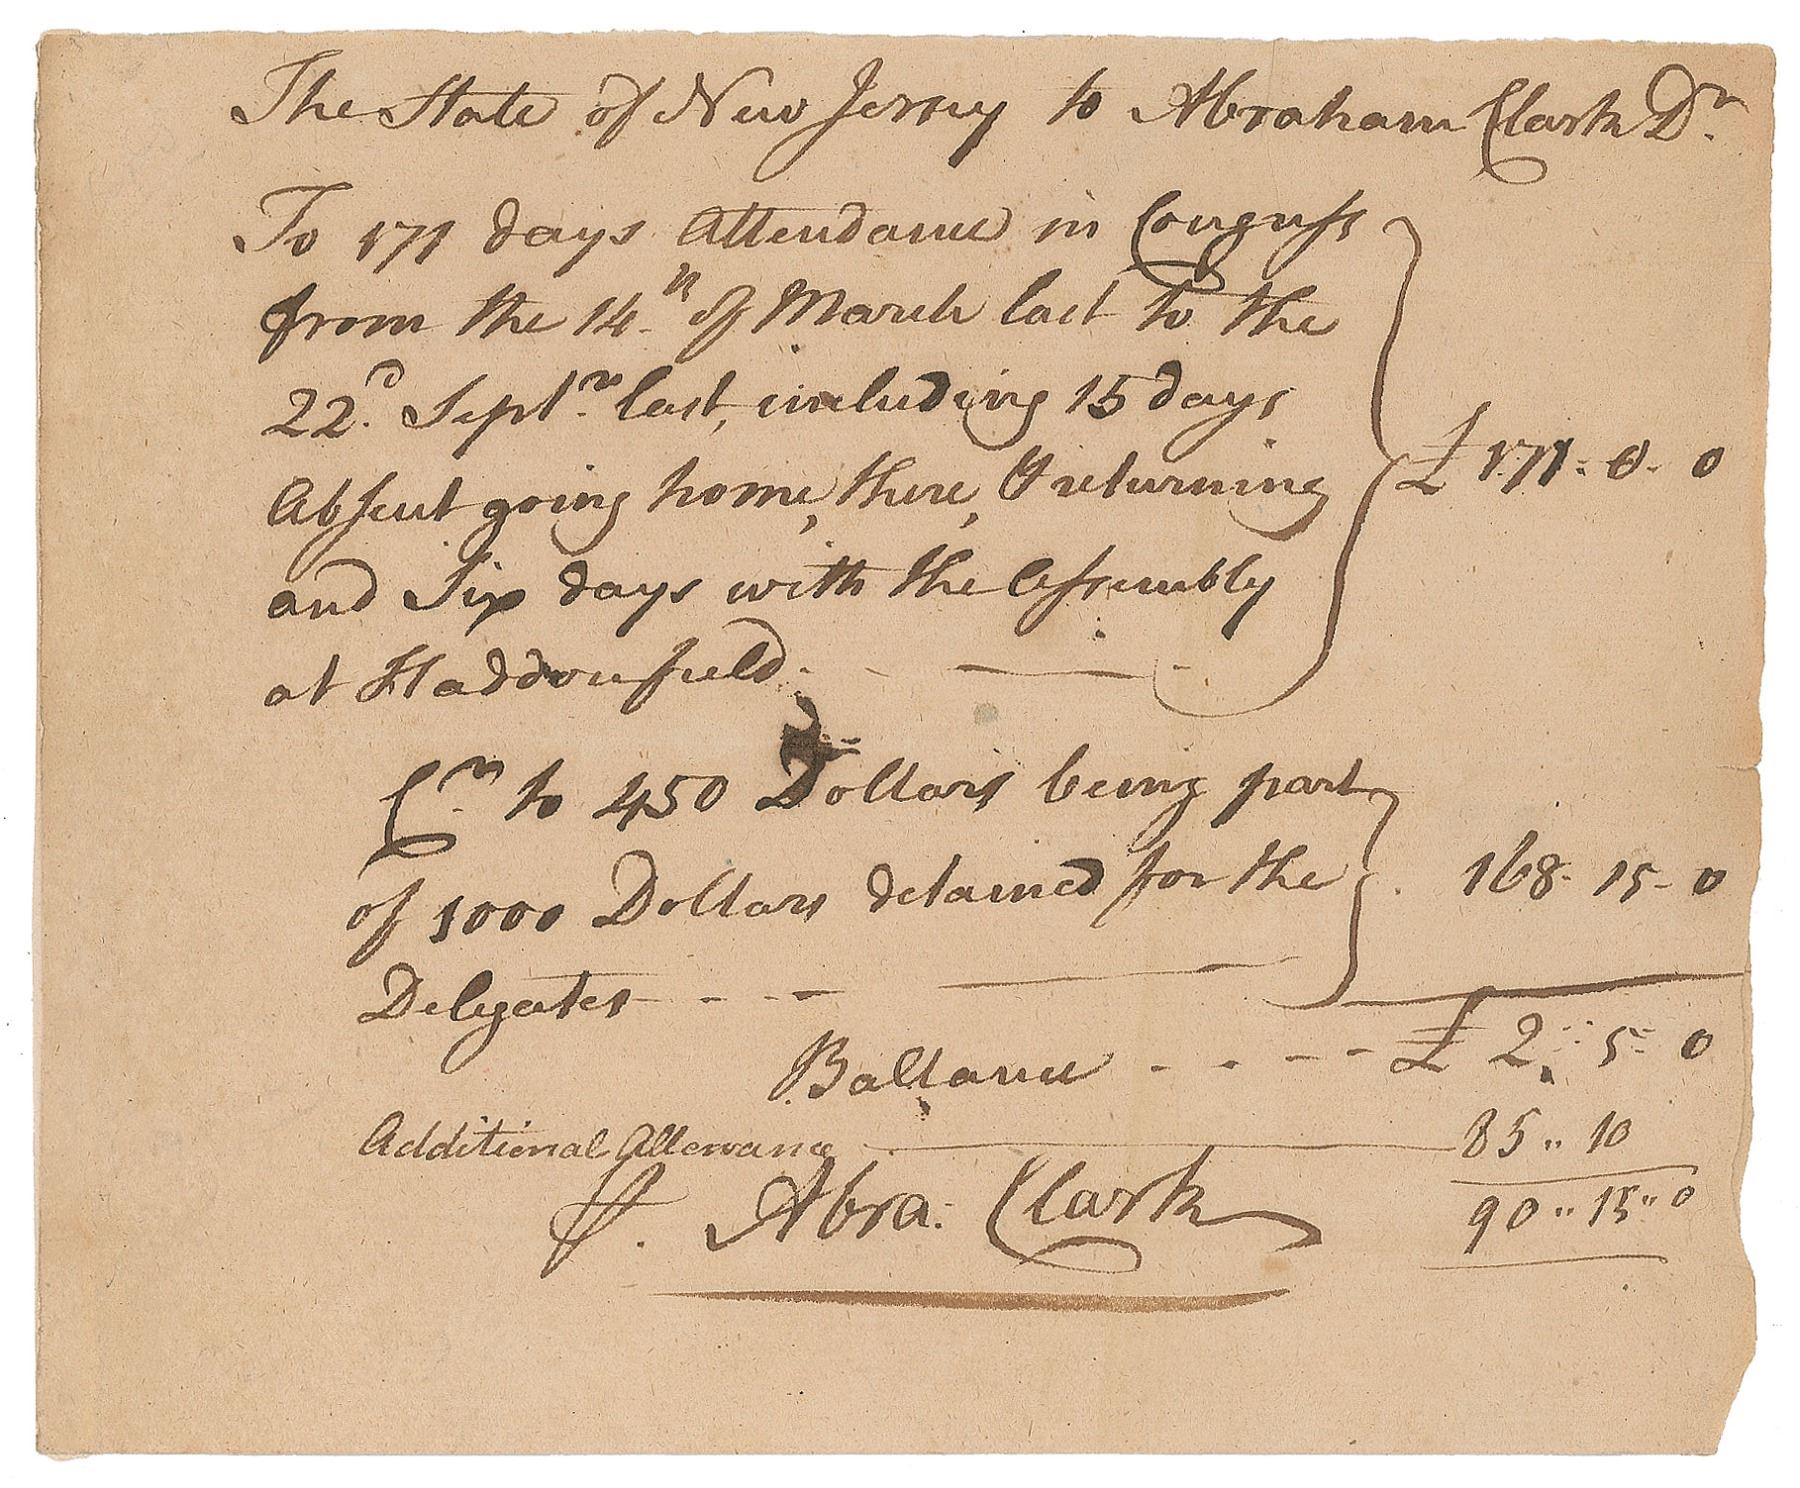 The State of New Jersey to Abraham Clark Dr.
To 171 days Attendance in Congress
from the 14th of March last to the
22d Septr last, including 15 days
Absent going home, there, & returning
and Six days with the Assembly
at Haddonfield. £ 171-0-0
Cr to 450 Dollars being part
of 1000 Dollars detained for the
Delegates 168-15-0
Ballance £ 2-5-0
Additional Allowance 85"10
P. Abra: Clark 90"15"0